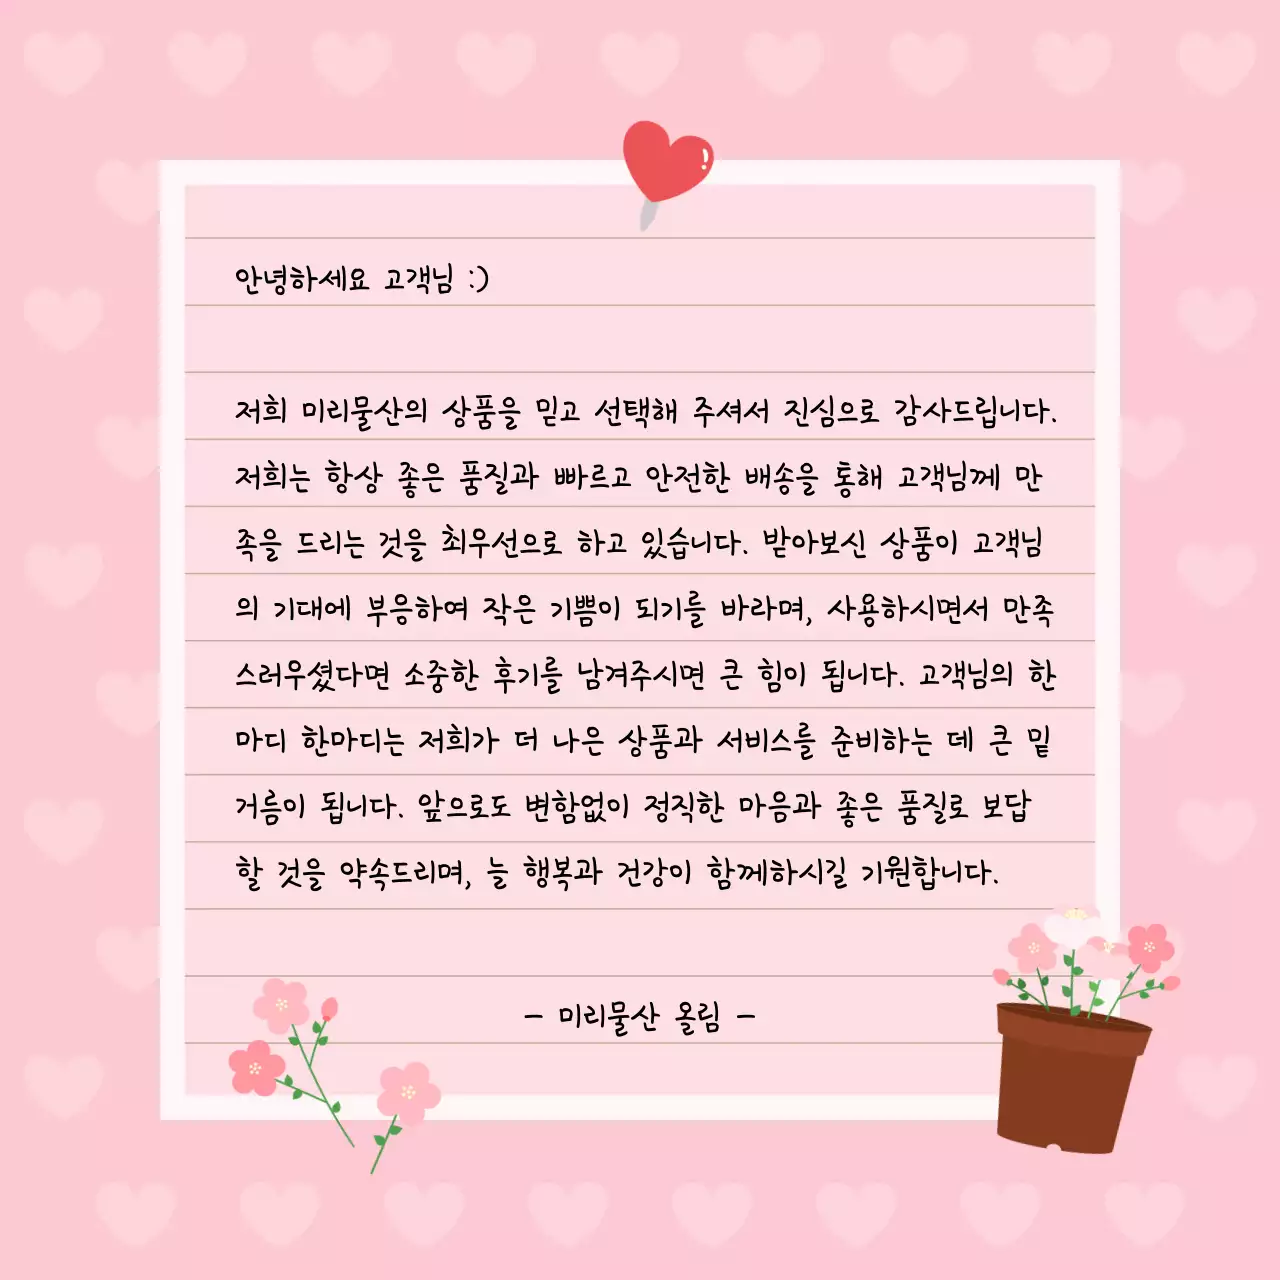 안녕하세요 고객님 :)
저희 미리물산의 상품을 믿고 선택해 주셔서 진심으로 감사드립니다.
저희는 항상 좋은 품질과 빠르고 안전한 배송을 통해 고객님께 만
족을 드리는 것을 최우선으로 하고 있습니다. 받아보신 상품이 고객님
의 기대에 부응하여 작은 기쁨이 되기를 바라며, 사용하시면서 만족
스러우셨다면 소중한 후기를 남겨주시면 큰 힘이 됩니다. 고객님의 한
마디 한마디는 저희가 더 나은 상품과 서비스를 준비하는 데 큰 밑
거름이 됩니다. 앞으로도 변함없이 정직한 마음과 좋은 품질로 보답
할 것을 약속드리며, 늘 행복과 건강이 함께하시길 기원합니다.
- 미리물산 올림 -